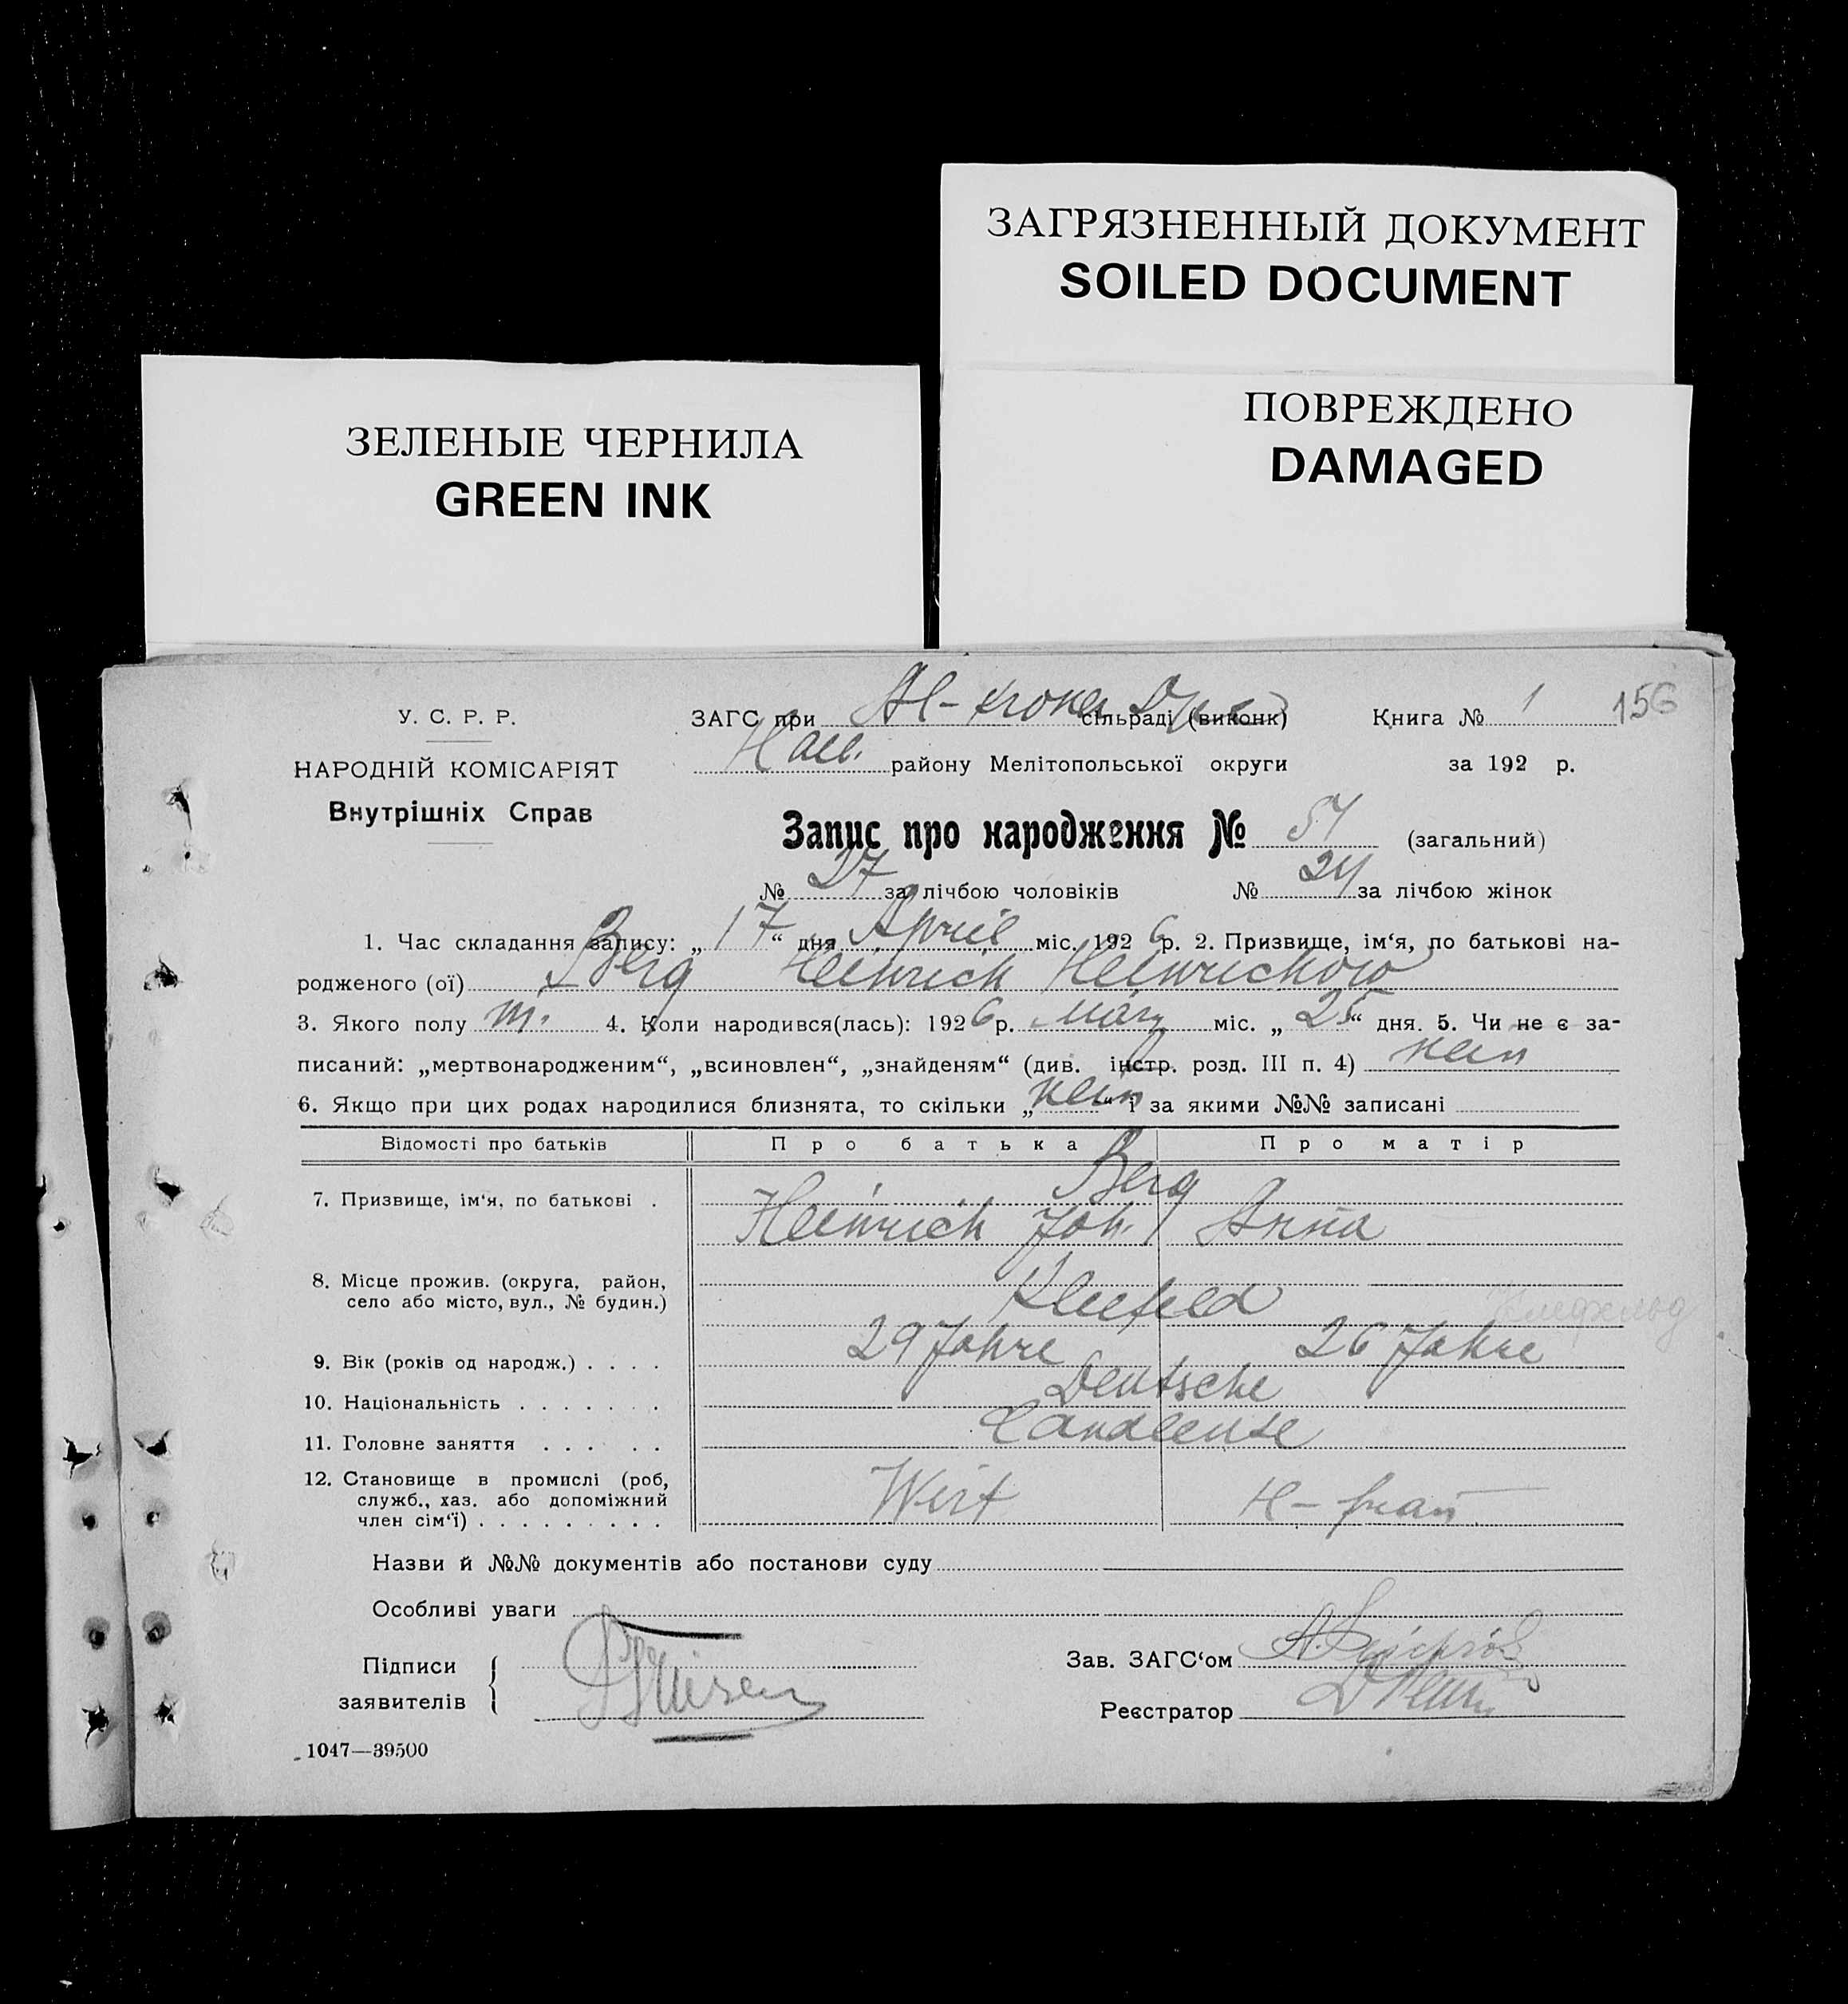 ЗАГРЯЗНЕННЫЙ ДОКУМЕНТ
SOILED DOCUMENT
ЗЕЛЕНЫЕ ЧЕРНИЛА
GREEN INK
ПОВРЕЖДЕНО
DAMAGED
У. С. Р. Р.
НАРОДНІЙ КОМІСАРІЯТ
Внутрішніх Справ
ЗАГС при Al- сільраді (виконк) Книга № 1 156
Hall. району Мелітопольської округи за 192 р.
Запис про народження № 51 (загальний)
№ 27 за лічбою чоловіків № 24 за лічбою жінок
1. Час складання запису: „ 17 “ дня April міс. 1926 р. 2. Призвище, ім‘я, по батькові на-
родженого (ої) Berg Heinrich Heinrichow
3. Якого полу m. 4. Коли народився(лась): 1926 р. März міс. „ 25 “ дня. 5. Чи не є за-
писаний: „мертвонародженим“, „всиновлен“, „знайденям“ (див. інстр. розд. III п. 4) nein
6. Якщо при цих родах народилися близнята, то скільки „ nein “ і за якими №№ записані
Відомості про батьків Про батька Про матір
7. Призвище, ім‘я, по батькові . Berg
Heinrich Joh. Anna
8. Місце прожив. (округа, район,
село або місто, вул., № будин.) Kleefeld Клефельд
9. Вік (років од народж.) . . . . 29 Jahre 26 Jahre
10. Національність . . . . . . . Deutsche
11. Головне заняття . . . . . Landleute
12. Становище в промислі (роб,
служб., хаз. або допоміжний
член сім‘ї) . . . . . . . . . Wirt H- frau
Назви й №№ документів або постанови суду
Особливі уваги
Підписи
заявителів
Зав. ЗАГС‘ом
Реєстратор
1047—39500